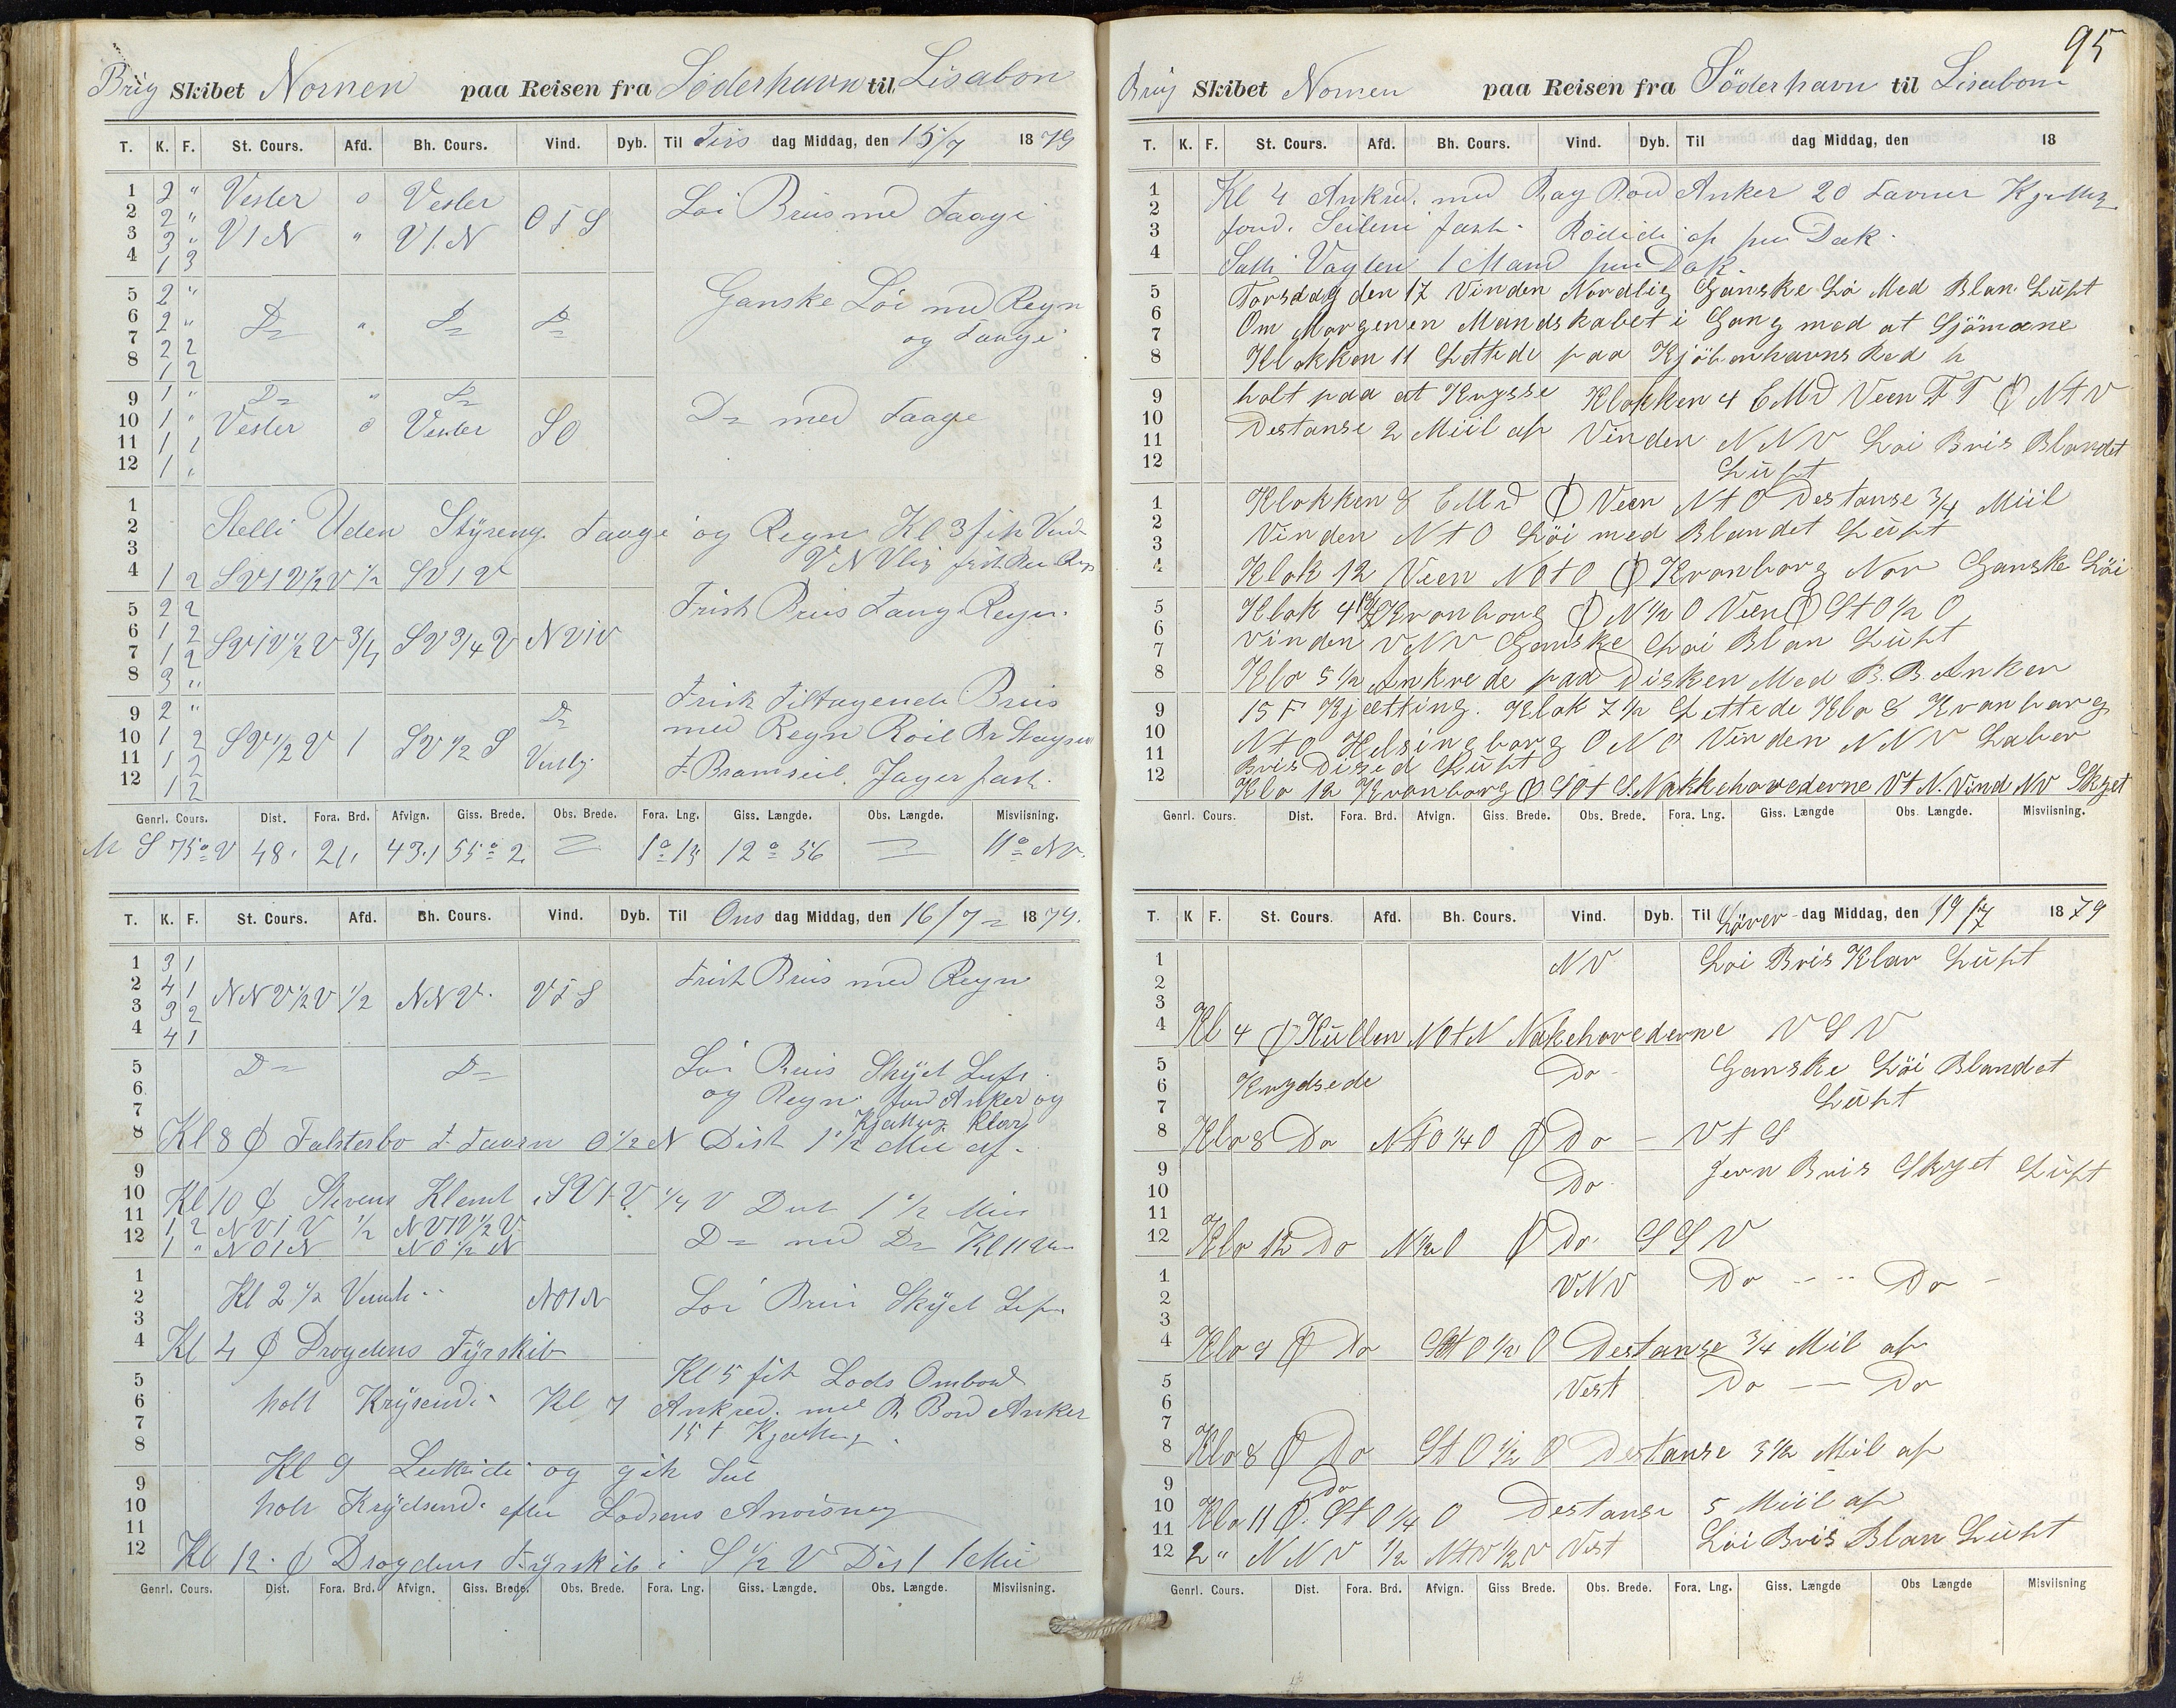 Brig Skibet Nornen paa Reisen fra Söderhavn til Lisabon
T. K. F. St. Cours. Afd. Bh. Cours. Vind. Dyb. Til Tirs dag Middag, den 15/7 1879
1 2 " Vester 0 Vester OtS Löi Briis med Taage
2 2 "
3 3 " V t N " V t N
4 1 3
5 2 " Ganske Löi med Regn
6 2 " Do " Do Do og Taage
7 2 2
8 1 2
9 1 " Do " Do
10 1 " Vester 0 Vester SO Do med Taage
11 1 1
12 1 "
1
2 Stelle Uden Styreng. Taage og Regn Kl 3 fik Vind
3 VNVlig frisk Bris Regn
4 1 2 SVtV½V ½ SVtV
5 2 2 Frisk Briis Taage Regn.
6 1 2 SVtV½V 3/4 SV 3/4 V NVtV
7 1 2
8 3 "
9 2 " Do Frisk Tiltagende Briis
10 1 2 SV½V 1 SV½S med Regn Röil Br Stagseil
11 1 2 Vestlig F. Bramseil. Jager fast.
12 1 2
Genrl. Cours. Dist. Fora. Brd. Afvign. Giss. Brede. Obs. Brede. Fora. Lng. Giss. Længde. Obs. Længde. Misviisning.
M S 75° V 48. 21. 43.1 55° 2 = 1° 15 12° 56 = 11° NV.
T. K. F. St. Cours. Afd. Bh. Cours. Vind. Dyb. Til Ons dag Middag, den 16/7 = 1879.
1 3 1 Frisk Briis med Regn
2 4 1 NNV½V ½ NNV. VtS
3 3 2
4 4 1
5 Do Do Löi Briis Skyet Luft.
6 og Regn. for Anker og
7 Kjætting Klar
8 Kl 8 Φ Falsterbo F. Taarn O½N Dist 1½ Mil af.
9
10 Kl 10 Φ Stevens Klemt. SVtV ¼ V Dist 1½ Mil
11 1 2 NVtV ½ NVtV½V
12 1 " NOtN NO½N Do med Do Kl 11
1
2 Kl 2½ Vendte NOtN Löi Briis Skyet Luft.
3
4 Kl 4 Φ Drogdens Fyrskib
5 Kl 5 fik Lods Ombord
6 holt Krysend. Kl 7 Ankred. med B. Bord Anker
7 15 f Kjætting.
8
Kl 9 Lettede og gik Seil
9
10 holt Krydsend. efter Lodsens Anvisneng
11
12 Kl 12. Φ Drogdens Fyrskib i S½V Dist 1 Mil
Genrl. Cours. Dist. Fora. Brd. Afvign. Giss. Brede. Obs. Brede. Fora. Lng. Giss. Længde. Obs. Længde. Misviisning.
95
Brig Skibet Nornen paa Reisen fra Söderhavn til Lisabon
T. K. F. St. Cours. Afd. Bh. Cours. Vind. Dyb. Til dag Middag, den 18
1 Kl 4 Ankred. med Bag Bord Anker 20 Favner Kjetting
2
3 ford. Seilene fast. Rödede op paa Dæk.
4 Satte Vagten 1 Mand paa Dæk.
5 Torsdag den 17 Vinden Nordlig Ganske Lö Med Blan Lüft
6 Om Morgenen Mandskabet i Gang med at Sjömæne
7
8 Klokken 11 Lettede paa Kjöbenhavns Red h
9 holt paa at Krysse Klokken 4 EMd Veen F T Φ NtV
10 Destanse 2 Miil af Vinden NNV Löi Bris Blandet
11
12 Lüft
1 Klokken 8 EMd Φ Veen NtO Destanse 3/4 Miil
2
3 Vinden NtO Löi med Blandet Lüft
4 Klok 12 Veen NOtO Φ Kronborg Nor Ganske Löi
5 Klok 4 Kronborg Φ N½O Veen Φ StO½O
6
7 Vinden VNV Ganske Löi Blan Lüft
8 Klo 5½ Ankrede paa Disken Med B.B. Anker
9 15 F Kjætting. Klok 7½ Lettede Klo 8 Kronborg
10 NtO Helsingborg ONO Vinden NNV Laber
11 Bris Diset Lüft
12 Klo 12 Kronborg Φ SOtS. Nakkehovederne VtN. Vind NV Skyet
Genrl. Cours. Dist. Fora. Brd. Afvign. Giss. Brede. Obs. Brede. Fora. Lng. Giss. Længde Obs. Længde. Misviisning.
T. K F. St. Cours. Afd. Bh. Cours. Vind. Dyb. Til Löver dag Middag, den 19/7 1879
1 NV Löi Bris Klar Lüft
2
3
4 Kl 4 Φ Küllen NOtN Nakehovederne VSV
5 Do Ganske Löi Blandet
6 Krydsede
7 Lüft
8 Klo 8 Do NtO¼O Φ Do — VtS
9 Do Jevn Bris Skyet Lüft
10
11
12 Klo 12 Do N½O Φ Do SSV
1 VNV Do -- -- Do -
2
3
4 Klo 4 Φ Do StO½O Destanse 3/4 Mil af
5 Vest Do — Do
6
7
8 Klo 8 Φ Do StO½O Destanse 3½ Mil af
9
10 Klo 11 Φ. Do StO¼O Destanse 5 Miil af
11
12 2 " NNV ½ NtV½V Vest Löi Bris Blan Lüft
Genrl. Cours. Dist. Fora. Brd. Afvign. Giss Brede. Obs. Brede. Fora. Lng. Giss. Længde Obs Længde Misviisning